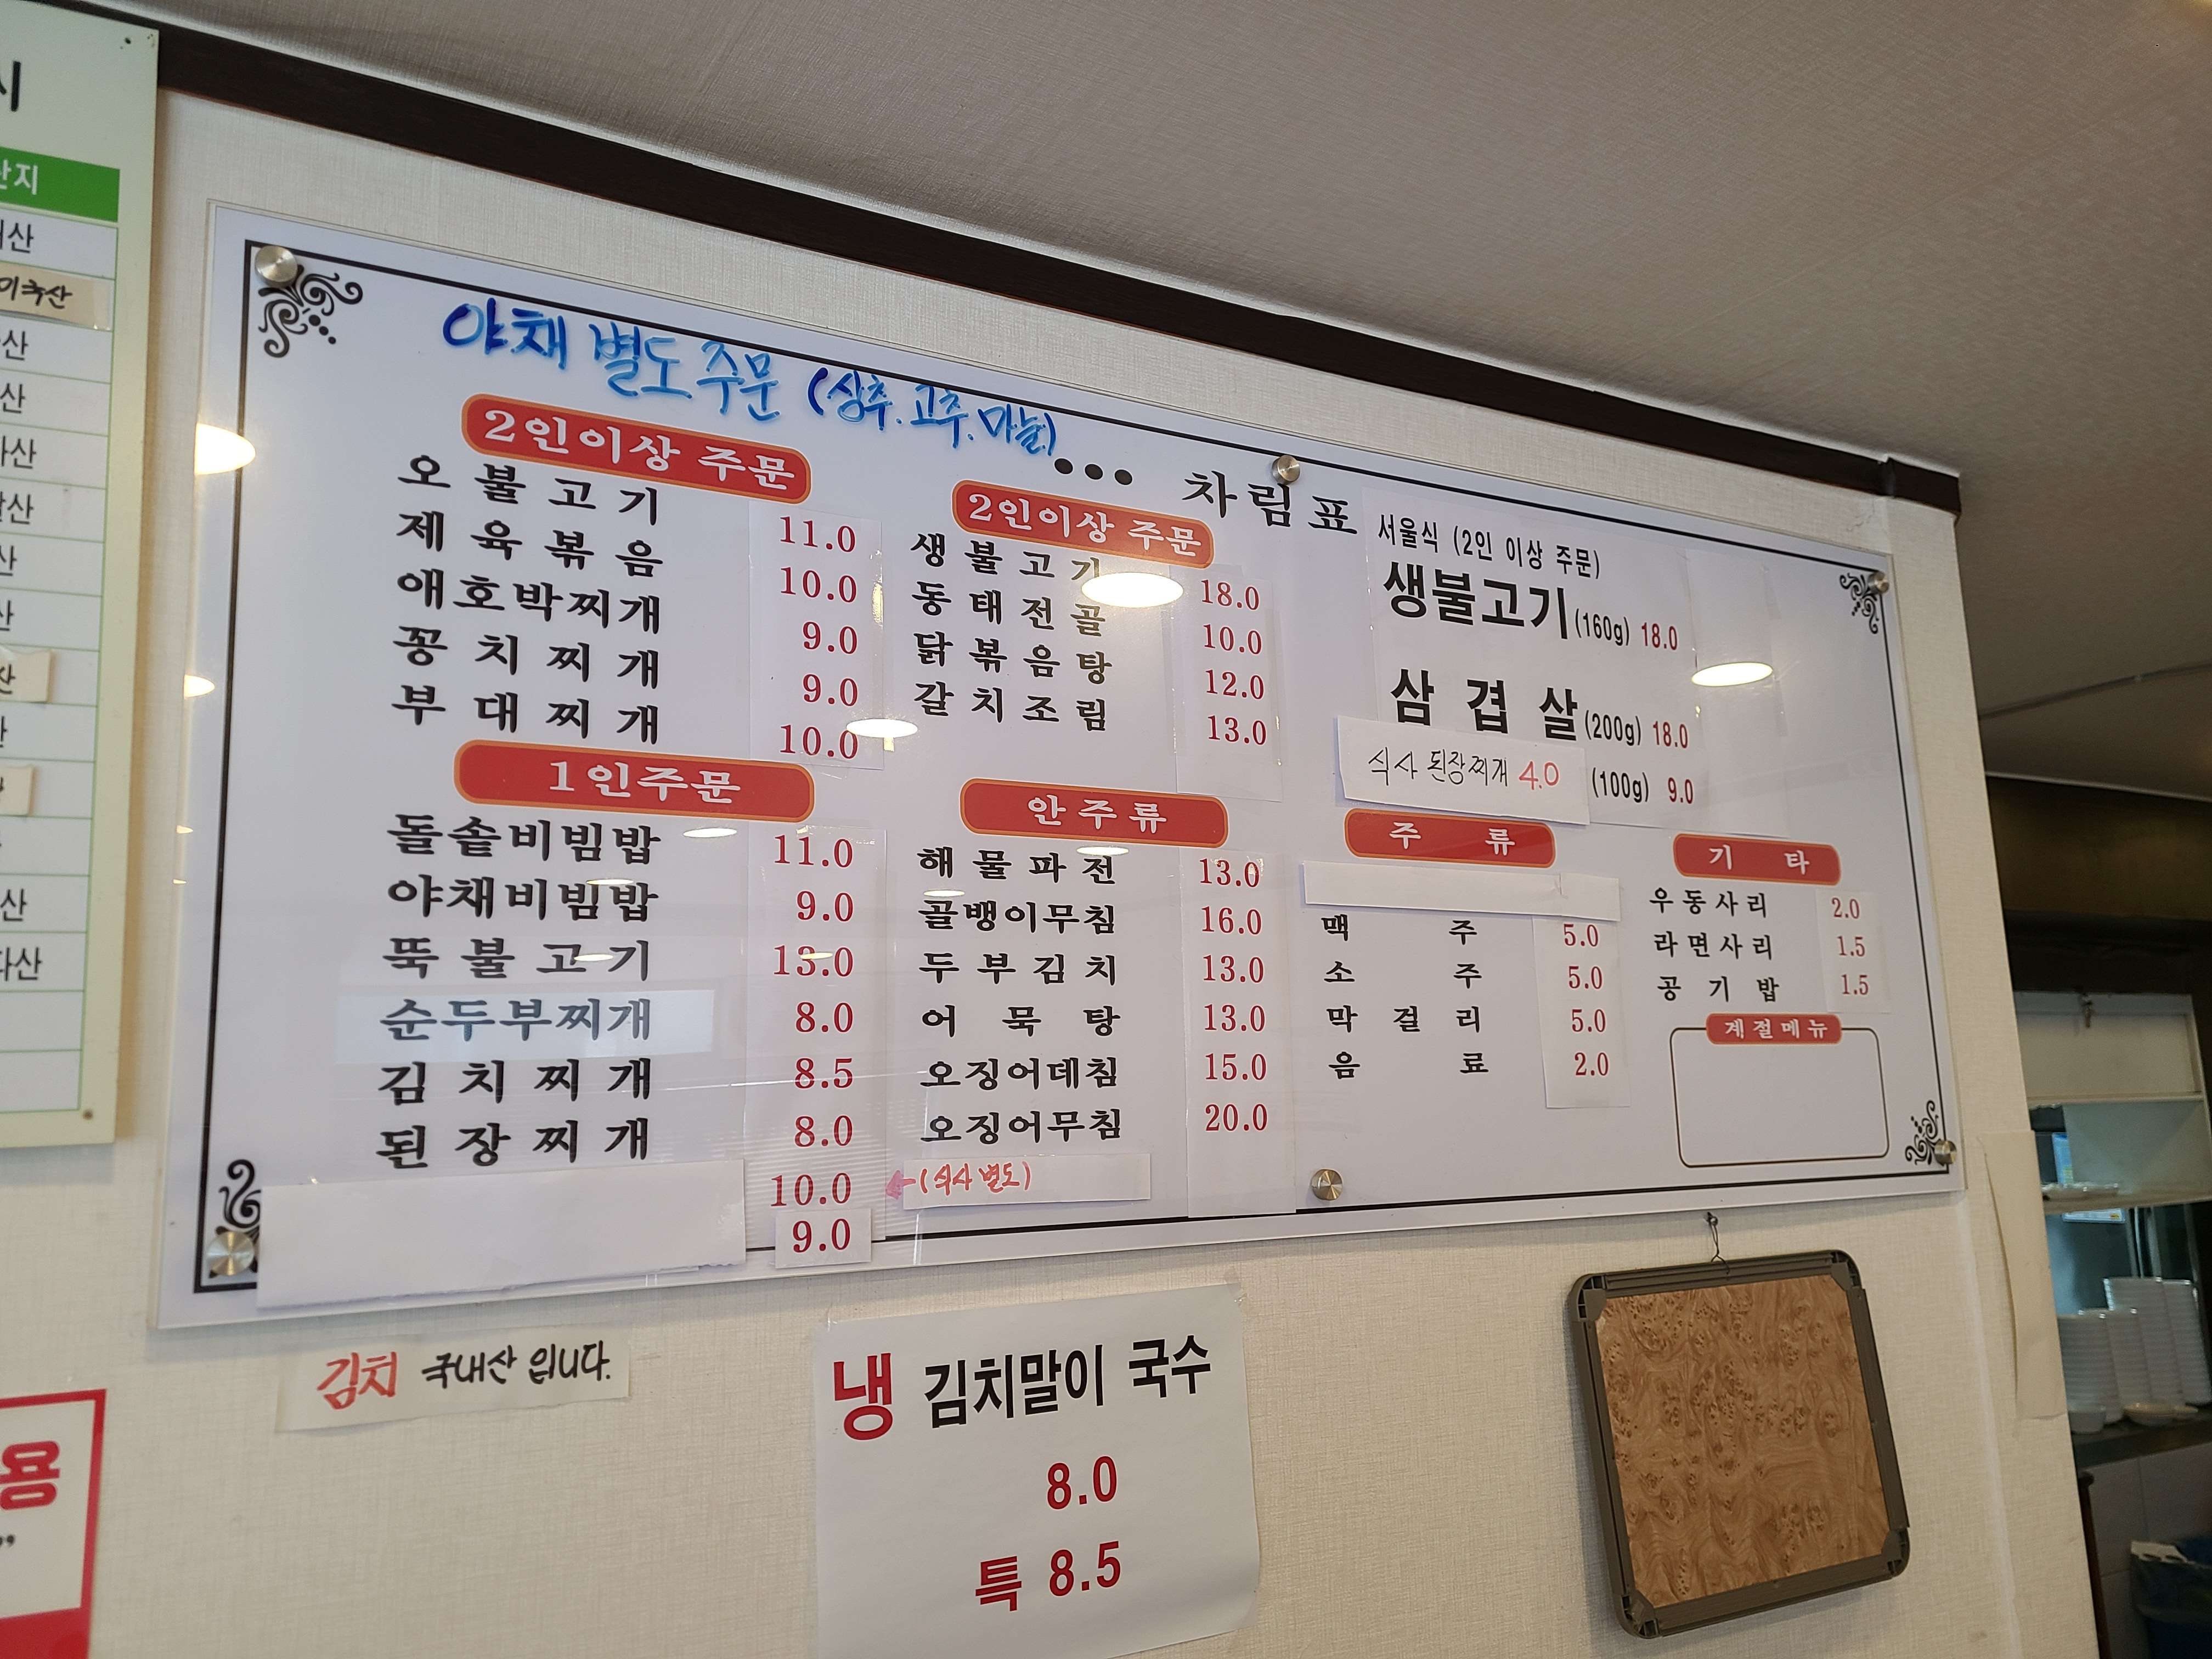 시
산지
산
산
산
산
산
산
산
산
산
산
야채 별도 주문 (상추.고추.마늘)
••• 차림표
2인이상 주문
오불고기 11.0
제육볶음 10.0
애호박찌개 9.0
꽁치찌개 9.0
부대찌개 10.0
1인주문
돌솥비빔밥 11.0
야채비빔밥 9.0
뚝불고기 13.0
순두부찌개 8.0
김치찌개 8.5
된장찌개 8.0
10.0
9.0
2인이상 주문
생불고기 18.0
동태전골 10.0
닭볶음탕 12.0
갈치조림 13.0
안주류
해물파전 13.0
골뱅이무침 16.0
두부김치 13.0
어묵탕 13.0
오징어데침 15.0
오징어무침 20.0
←(식사 별도)
서울식 (2인 이상 주문)
생불고기(160g) 18.0
삼겹살(200g) 18.0
식사 된장찌개 4.0
(100g) 9.0
주류
맥주 5.0
소주 5.0
막걸리 5.0
음료 2.0
기타
우동사리 2.0
라면사리 1.5
공기밥 1.5
계절메뉴
김치 국내산 입니다.
냉 김치말이 국수
8.0
특 8.5
용
”